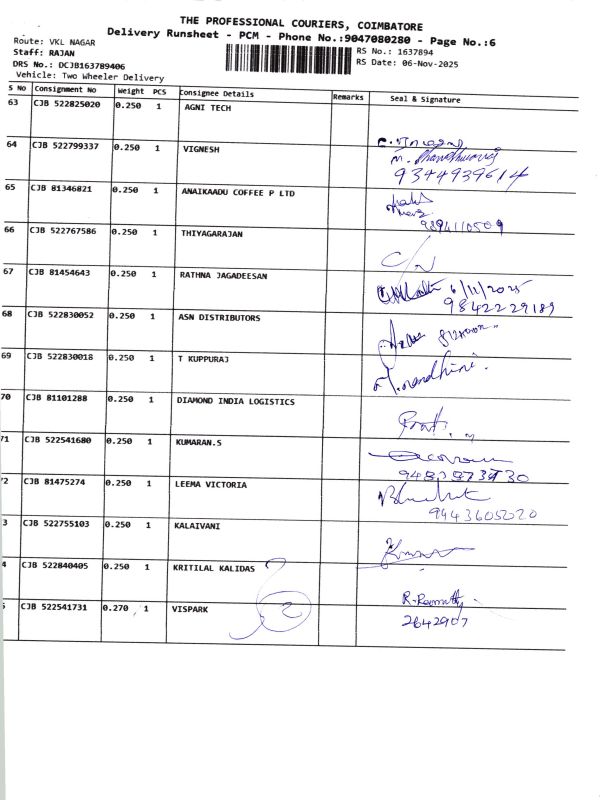 THE PROFESSIONAL COURIERS, COIMBATORE
Delivery Runsheet - PCM - Phone No.:9047080280 - Page No.:6
Route: VKL NAGAR
Staff: RAJAN
DRS No.: DCJB163789406
Vehicle: Two Wheeler Delivery
RS No.: 1637894
RS Date: 06-Nov-2025
S No Consignment No Weight PCS Consignee Details Remarks Seal & Signature
63 CJB 522825020 0.250 1 AGNI TECH
64 CJB 522799337 0.250 1 VIGNESH
9344939614
65 CJB 81346821 0.250 1 ANAIKAADU COFFEE P LTD
9894110509
66 CJB 522767586 0.250 1 THIYAGARAJAN
C/N
67 CJB 81454643 0.250 1 RATHNA JAGADEESAN
6/11/2025
9842229189
68 CJB 522830052 0.250 1 ASN DISTRIBUTORS
69 CJB 522830018 0.250 1 T KUPPURAJ
70 CJB 81101288 0.250 1 DIAMOND INDIA LOGISTICS
71 CJB 522541680 0.250 1 KUMARAN.S
2 CJB 81475274 0.250 1 LEEMA VICTORIA
9443605020
3 CJB 522755103 0.250 1 KALAIVANI
4 CJB 522840405 0.250 1 KRITILAL KALIDAS
CJB 522541731 0.270 1 VISPARK
2
2642907